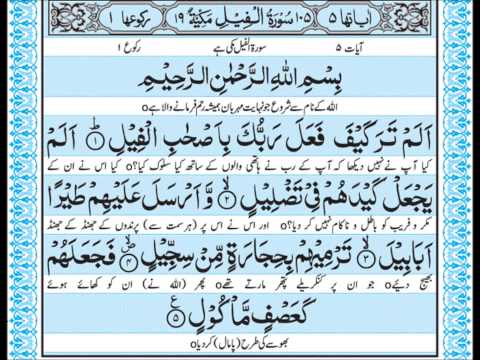 اٰیاتہا ۵ ۱۰۵ سُوْرَةُ الْفِیْلِ مَكِّیَّةٌ ۱۹ رکوعہا ۱
آیات ۵ سورۃ الفیل مکی ہے رکوع ۱
بِسْمِ اللّٰهِ الرَّحْمٰنِ الرَّحِیْمِ
اللہ کے نام سے شروع جو نہایت مہربان ہمیشہ رحم فرمانے والا ہے o
اَلَمْ تَرَ كَیْفَ فَعَلَ رَبُّكَ بِاَصْحٰبِ الْفِیْلِ ؕ﴿۱﴾ اَلَمْ
کیا آپ نے نہیں دیکھا کہ آپ کے رب نے ہاتھی والوں کے ساتھ کیا سلوک کیا؟o کیا اس نے ان کے
یَجْعَلْ كَیْدَهُمْ فِیْ تَضْلِیْلٍ ۙ﴿۲﴾ وَّ اَرْسَلَ عَلَیْهِمْ طَیْرًا
مکر و فریب کو باطل و ناکام نہیں کر دیا؟o اور اس نے اس پر (ہر سمت سے) پرندوں کے جھنڈ کے جھنڈ
اَبَابِیْلَ ۙ﴿۳﴾ تَرْمِیْهِمْ بِحِجَارَةٍ مِّنْ سِجِّیْلٍ ۪ۙ﴿۴﴾ فَجَعَلَهُمْ
بھیج دیئےo جو ان پر کنکریلے پتھر مارتے تھےo پھر (اللہ نے) ان کو کھائے ہوئے
كَعَصْفٍ مَّاْكُوْلٍ ﴿۵﴾ ع
بھوسے کی طرح (پامال) کر دیاo